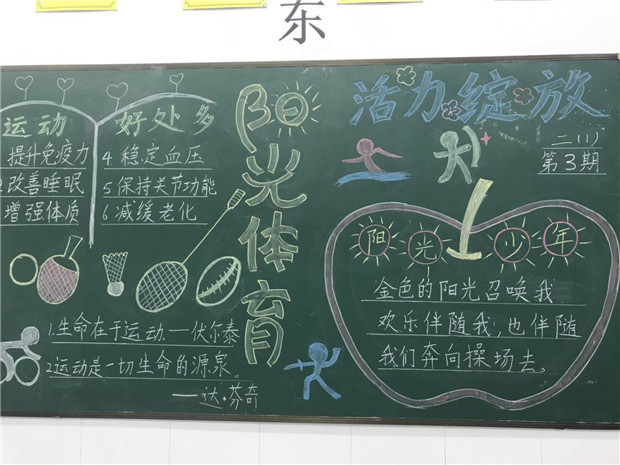 东
运动 好处多
提升免疫力
改善睡眠
增强体质
4 稳定血压
5 保持关节功能
6 减缓老化
1.生命在于运动.—伏尔泰
2运动是一切生命的源泉。
——达·芬奇
阳光体育
活力绽放
二(1)
第3期
阳光少年
金色的阳光召唤我
欢乐伴随我,也伴随
我们奔向操场去。